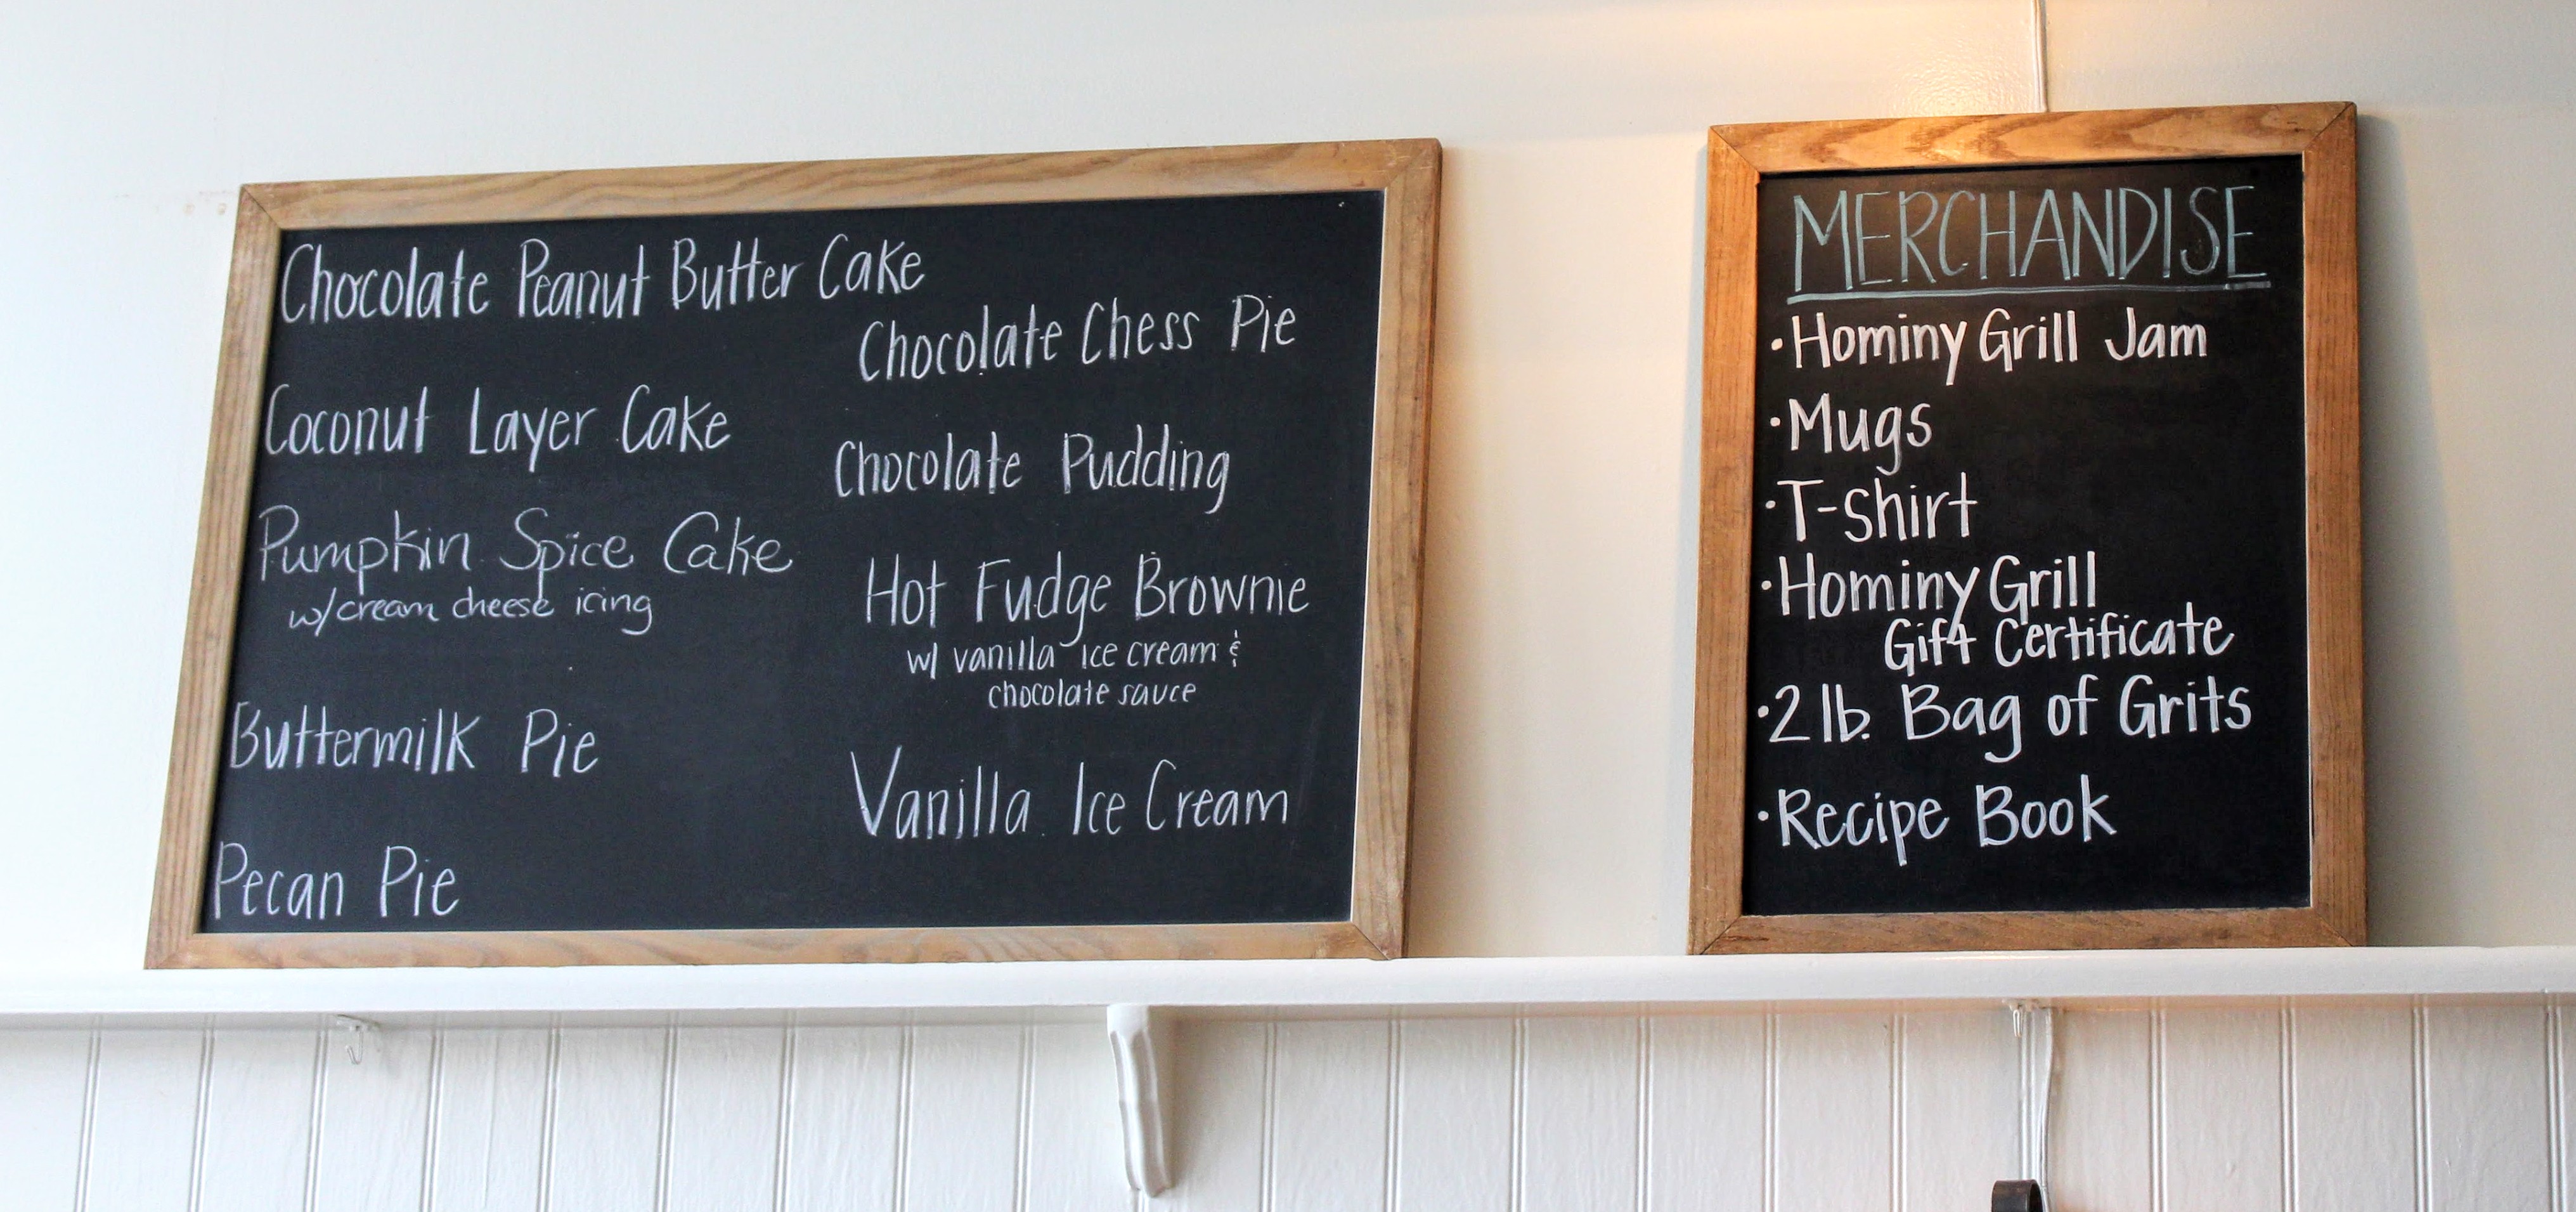 Chocolate Peanut Butter Cake
Coconut Layer Cake
Pumpkin Spice Cake
w/cream cheese icing
Buttermilk Pie
Pecan Pie
Chocolate Chess Pie
Chocolate Pudding
Hot Fudge Brownie
w/ vanilla ice cream &
chocolate sauce
Vanilla Ice Cream
MERCHANDISE
• Hominy Grill Jam
• Mugs
• T-shirt
• Hominy Grill
Gift Certificate
• 2 lb. Bag of Grits
• Recipe Book